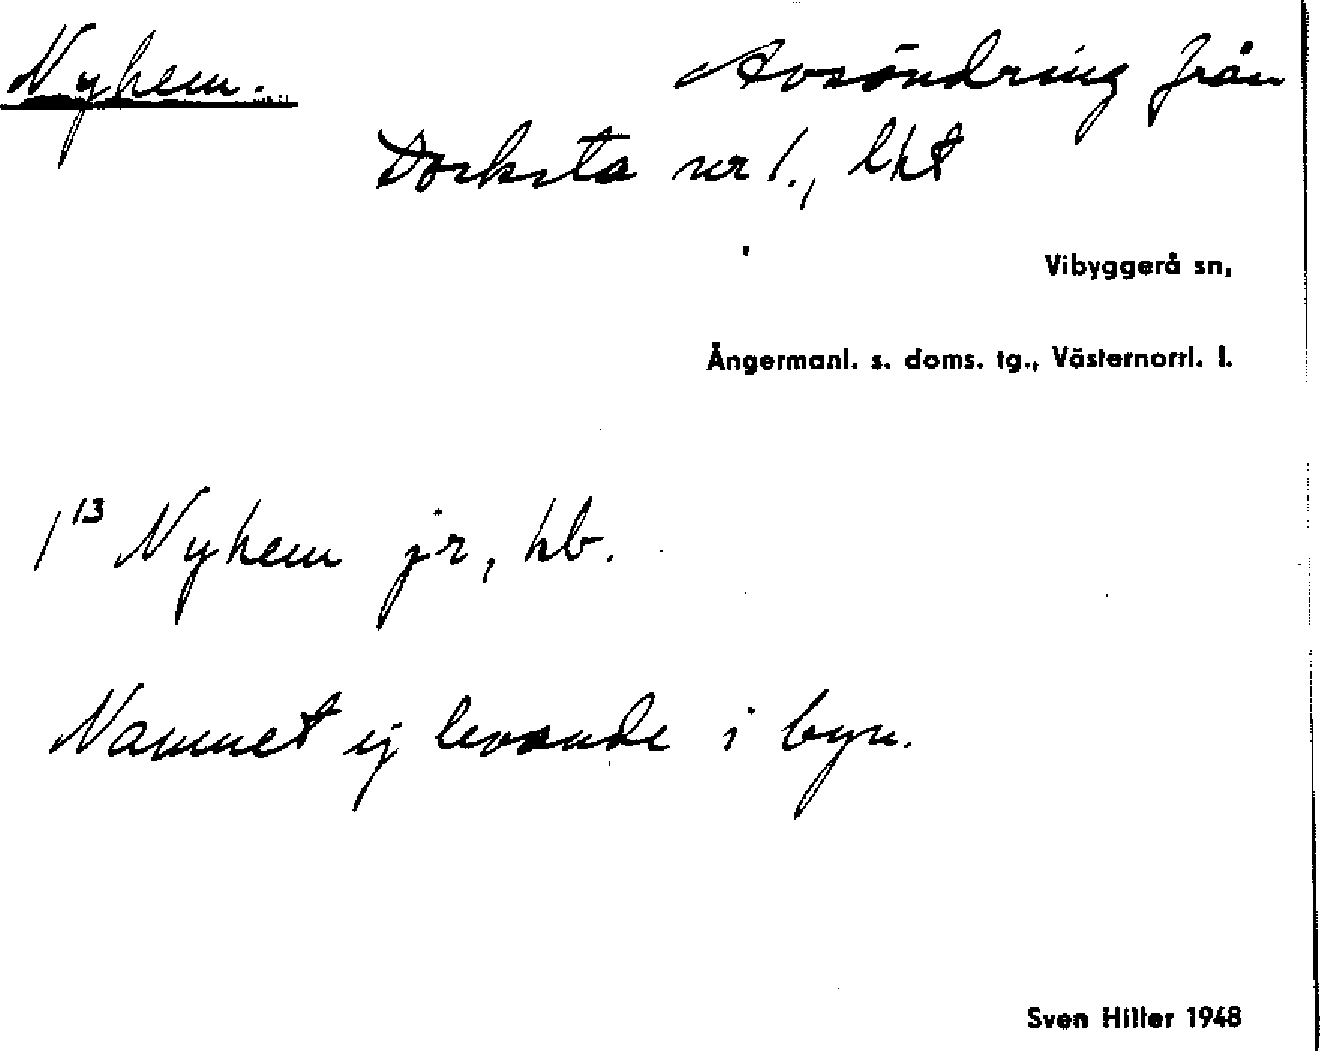 Nyhem. Avsöndring från
Docksta nr 1., lht
Vibyggerå sn,
Ångermanl. s. doms. tg., Västernorrl. l.
1¹³ Nyhem jr, hb.
Namnet ej levande i byn.
Sven Hiller 1948